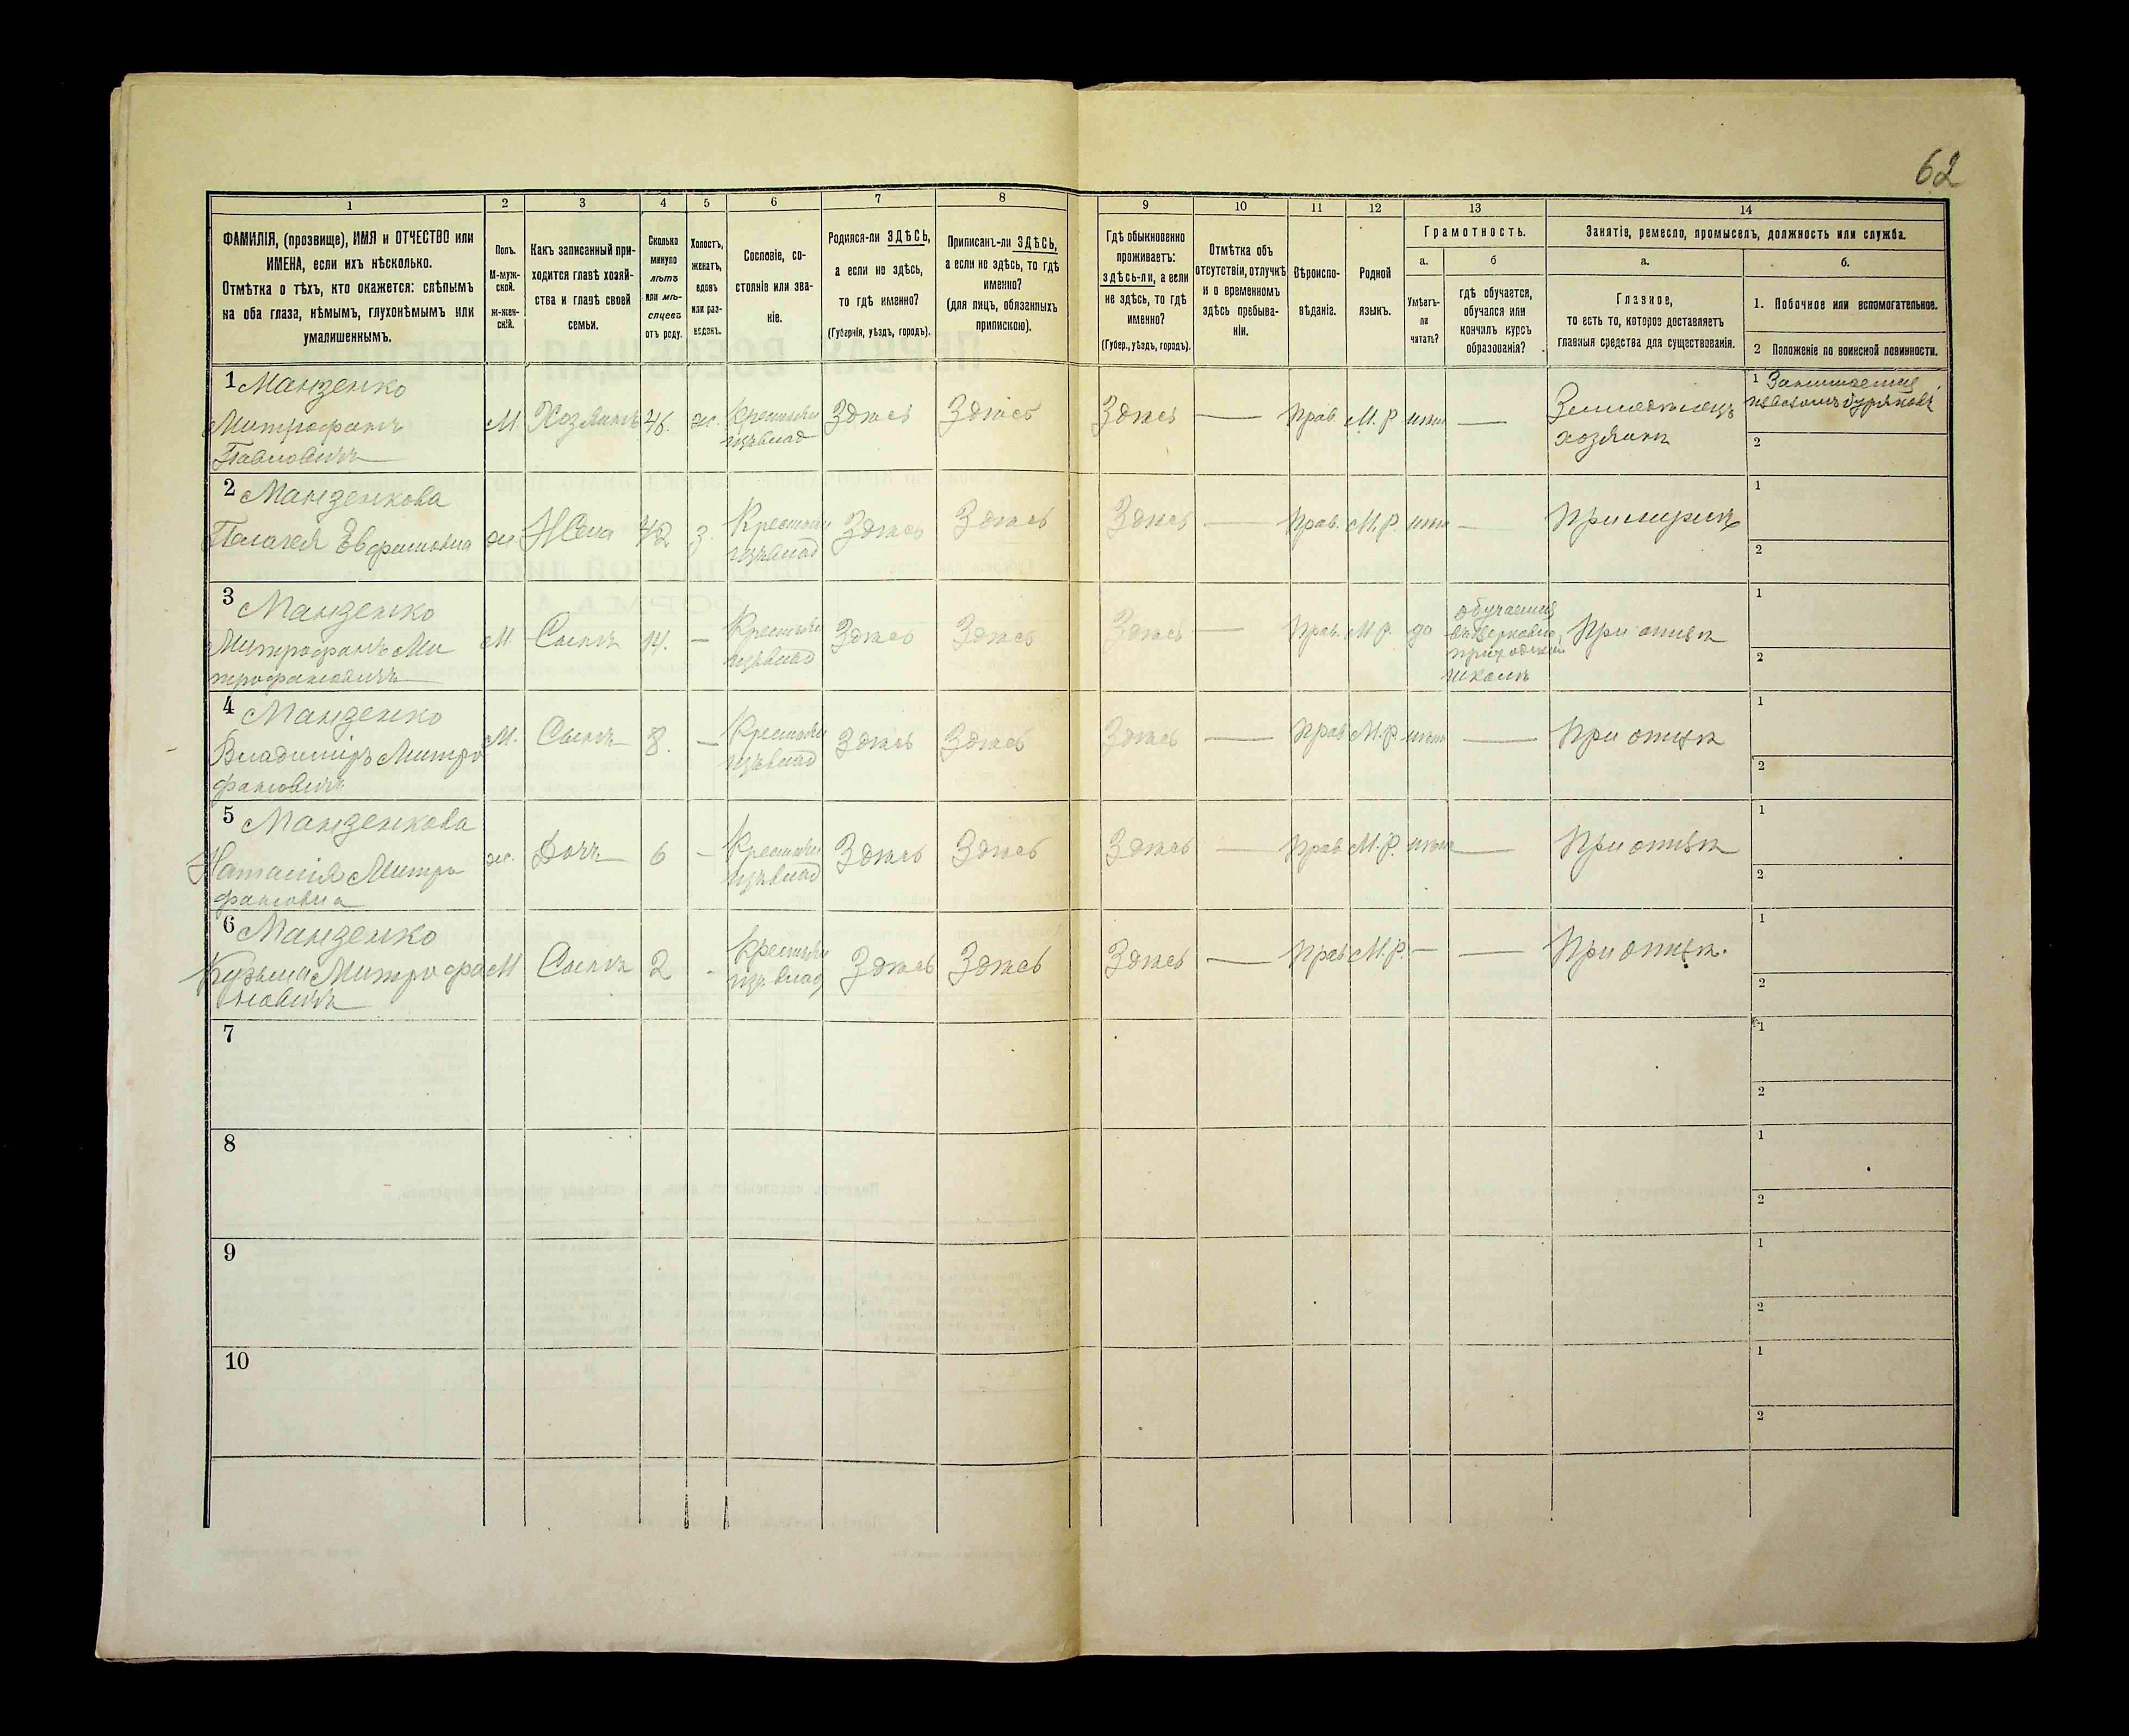 62
1
2
3
4
5
6
7
8
9
10
11
12
13
14
ФАМИЛІЯ, (прозвище), ИМЯ и ОТЧЕСТВО или
ИМЕНА, если ихъ нѣсколько.
Отмѣтка о тѣхъ, кто окажется: слѣпымъ
на оба глаза, нѣмымъ, глухонѣмымъ или
умалишеннымъ.
Полъ.
М-муж-
ской.
ж-жен-
скій.
Какъ записанный при-
ходится главѣ хозяй-
ства и главѣ своей
семьи.
Сколько
минуло
лѣтъ
или мѣ-
сяцевъ
отъ роду.
Холостъ,
женатъ,
вдовъ
или раз-
веденъ.
Сословіе, со-
стояніе или зва-
ніе.
Родился-ли ЗДѢСЬ,
а если не здѣсь,
то гдѣ именно?
(Губернія, уѣздъ, городъ).
Приписанъ-ли ЗДѢСЬ,
а если не здѣсь, то гдѣ
именно?
(для лицъ, обязанныхъ
припискою).
Гдѣ обыкновенно
проживаетъ:
здѣсь-ли, а если
не здѣсь, то гдѣ
именно?
(Губер., уѣздъ, городъ).
Отмѣтка объ
отсутствіи, отлучкѣ
и о временномъ
здѣсь пребыва-
ніи.
Вѣроиспо-
вѣданіе.
Родной
языкъ.
Грамотность.
а.
Умѣетъ-
ли
читать?
б
гдѣ обучается,
обучался или
кончилъ курсъ
образованія?
Занятіе, ремесло, промыселъ, должность или служба.
а.
Главное,
то есть то, которое доставляетъ
главныя средства для существованія.
б.
1. Побочное или вспомогательное.
2 Положеніе по воинской повинности.
1 Манзенко
Митрофанъ
Павловичъ
М Хозяинъ 46. ж. Крестьян
изъ влад Здѣсь Здѣсь Здѣсь — Прав. М. Р нѣтъ —
Земледѣлецъ
хозяинъ
1 Занимается
извозомъ буряковъ
2
2 Манзенкова
Пелагея Евфимовна
ж Жена 42 з. Крестьян
изъ влад Здѣсь Здѣсь Здѣсь — Прав. М. Р. нѣтъ — При мужѣ
1
2
3 Манзенко
Митрофанъ Ми
трофановичъ
М Сынъ 14. — Крестьян
изъ влад Здѣсь Здѣсь Здѣсь — Прав. М. Р. да
обучается
въ церковно
приходской
школѣ
При отцѣ
1
2
4 Манзенко
Владиміръ Митро
фановичъ
М. Сынъ 8. — Крестьян
изъ влад Здѣсь Здѣсь Здѣсь — Прав М. Р нѣтъ — При отцѣ
1
2
5 Манзенкова
Наталія Митро
фановна
ж. Дочь 6 — Крестьян
изъ влад Здѣсь Здѣсь Здѣсь — Прав М. Р. нѣтъ — При отцѣ
1
2
6 Манзенко
Кузьма Митрофа
новичъ
М Сынъ 2 - Крестьян
изъ влад Здѣсь Здѣсь Здѣсь — Прав М. Р. — — При отцѣ.
1
2
7
1
2
8
1
2
9
1
2
10
1
2